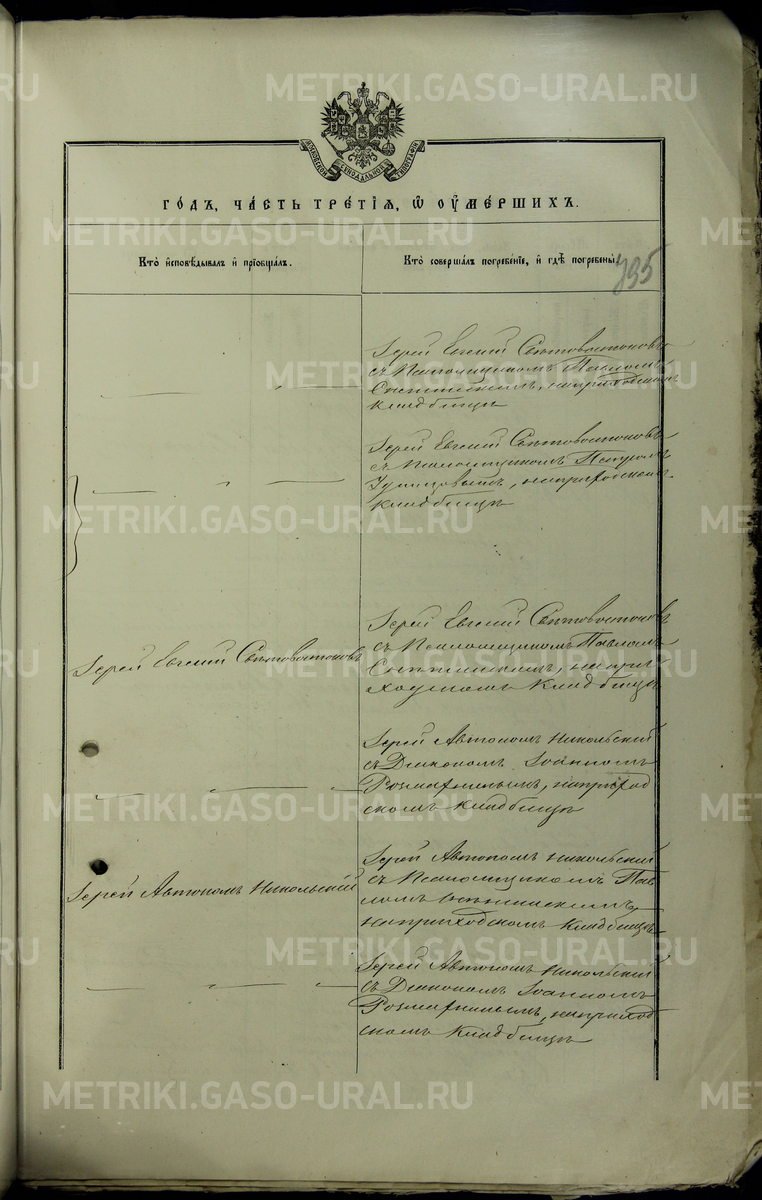 METRIKI.GASO-URAL.RU
МОСКОВСКОЙ СѴНОДАЛЬНОЙ ТИПОГРАФІИ
ГО́ДЪ, ЧА́СТЬ ТРЕ́ТІЯ, Ѡ ОУ҆МЕ́РШИХЪ.
Кто̀ и҆сповѣ́дывалъ и҆ прїобща́лъ.
Кто̀ соверша́лъ погребе́нїе, и҆ гдѣ̀ погребены̀.
395
Іерей Евгеній Свѣтовостоковъ
съ Псаломщикомъ Павломъ
на приходскомъ
кладбищѣ
Іерей Евгеній Свѣтовостоковъ
съ Псаломщикомъ Петромъ
на приходскомъ
кладбищѣ
Іерей Евгеній Свѣтовостоковъ
Іерей Евгеній Свѣтовостоковъ
съ Псаломщикомъ Павломъ
на при-
ходскомъ кладбищѣ
Іерей Автономъ Никольскій
съ Діакономъ Іоанномъ
на приход
скомъ кладбищѣ
Іерей Автономъ Никольскій
Іерей Автономъ Никольскій
съ Псаломщикомъ Пав
ломъ
на приходскомъ кладбищѣ
Іерей Автономъ Никольскій
съ Діакономъ Іоанномъ
на приход
скомъ кладбищѣ